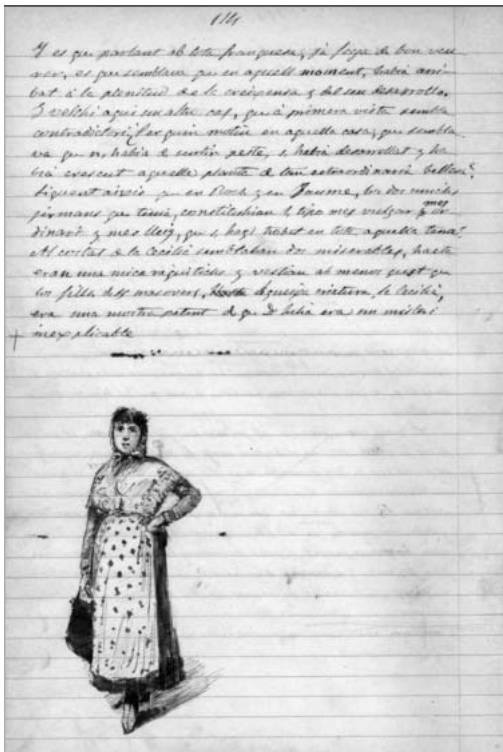 114
Y es que parlant ab tota franquesa, ja feya de bon veu-
rer, es que semblava que en aquell moment, habia arri-
bat á la plenitud de la creixensa y del seu desarrollo.
Y velshi aqui un altre cas, que á primera vista sembla
contradictori; Per quin motiu en aquella casa, que sembla-
va que no habia de surtir reste, s, habia desarrollat y ha-
bia crescut aquella planta de tan extraordinaria bellesa?
Siguent aixis que en Roch y en Jaume, los dos unichs
germans que tenia, constituhian lo tipo mes vulgar y mes or
dinari y mes lleig, que s, hagi trobat en tota aquella terra?
Al costat de la Cecilia semblaban dos miserables, hasta
eran una mica raquitichs y vestian ab menos gust que
los fills dels masovers, Aqueixa criatura, la Cecilia,
era una mostra patent de que D. Julia era un misteri
inexplicable